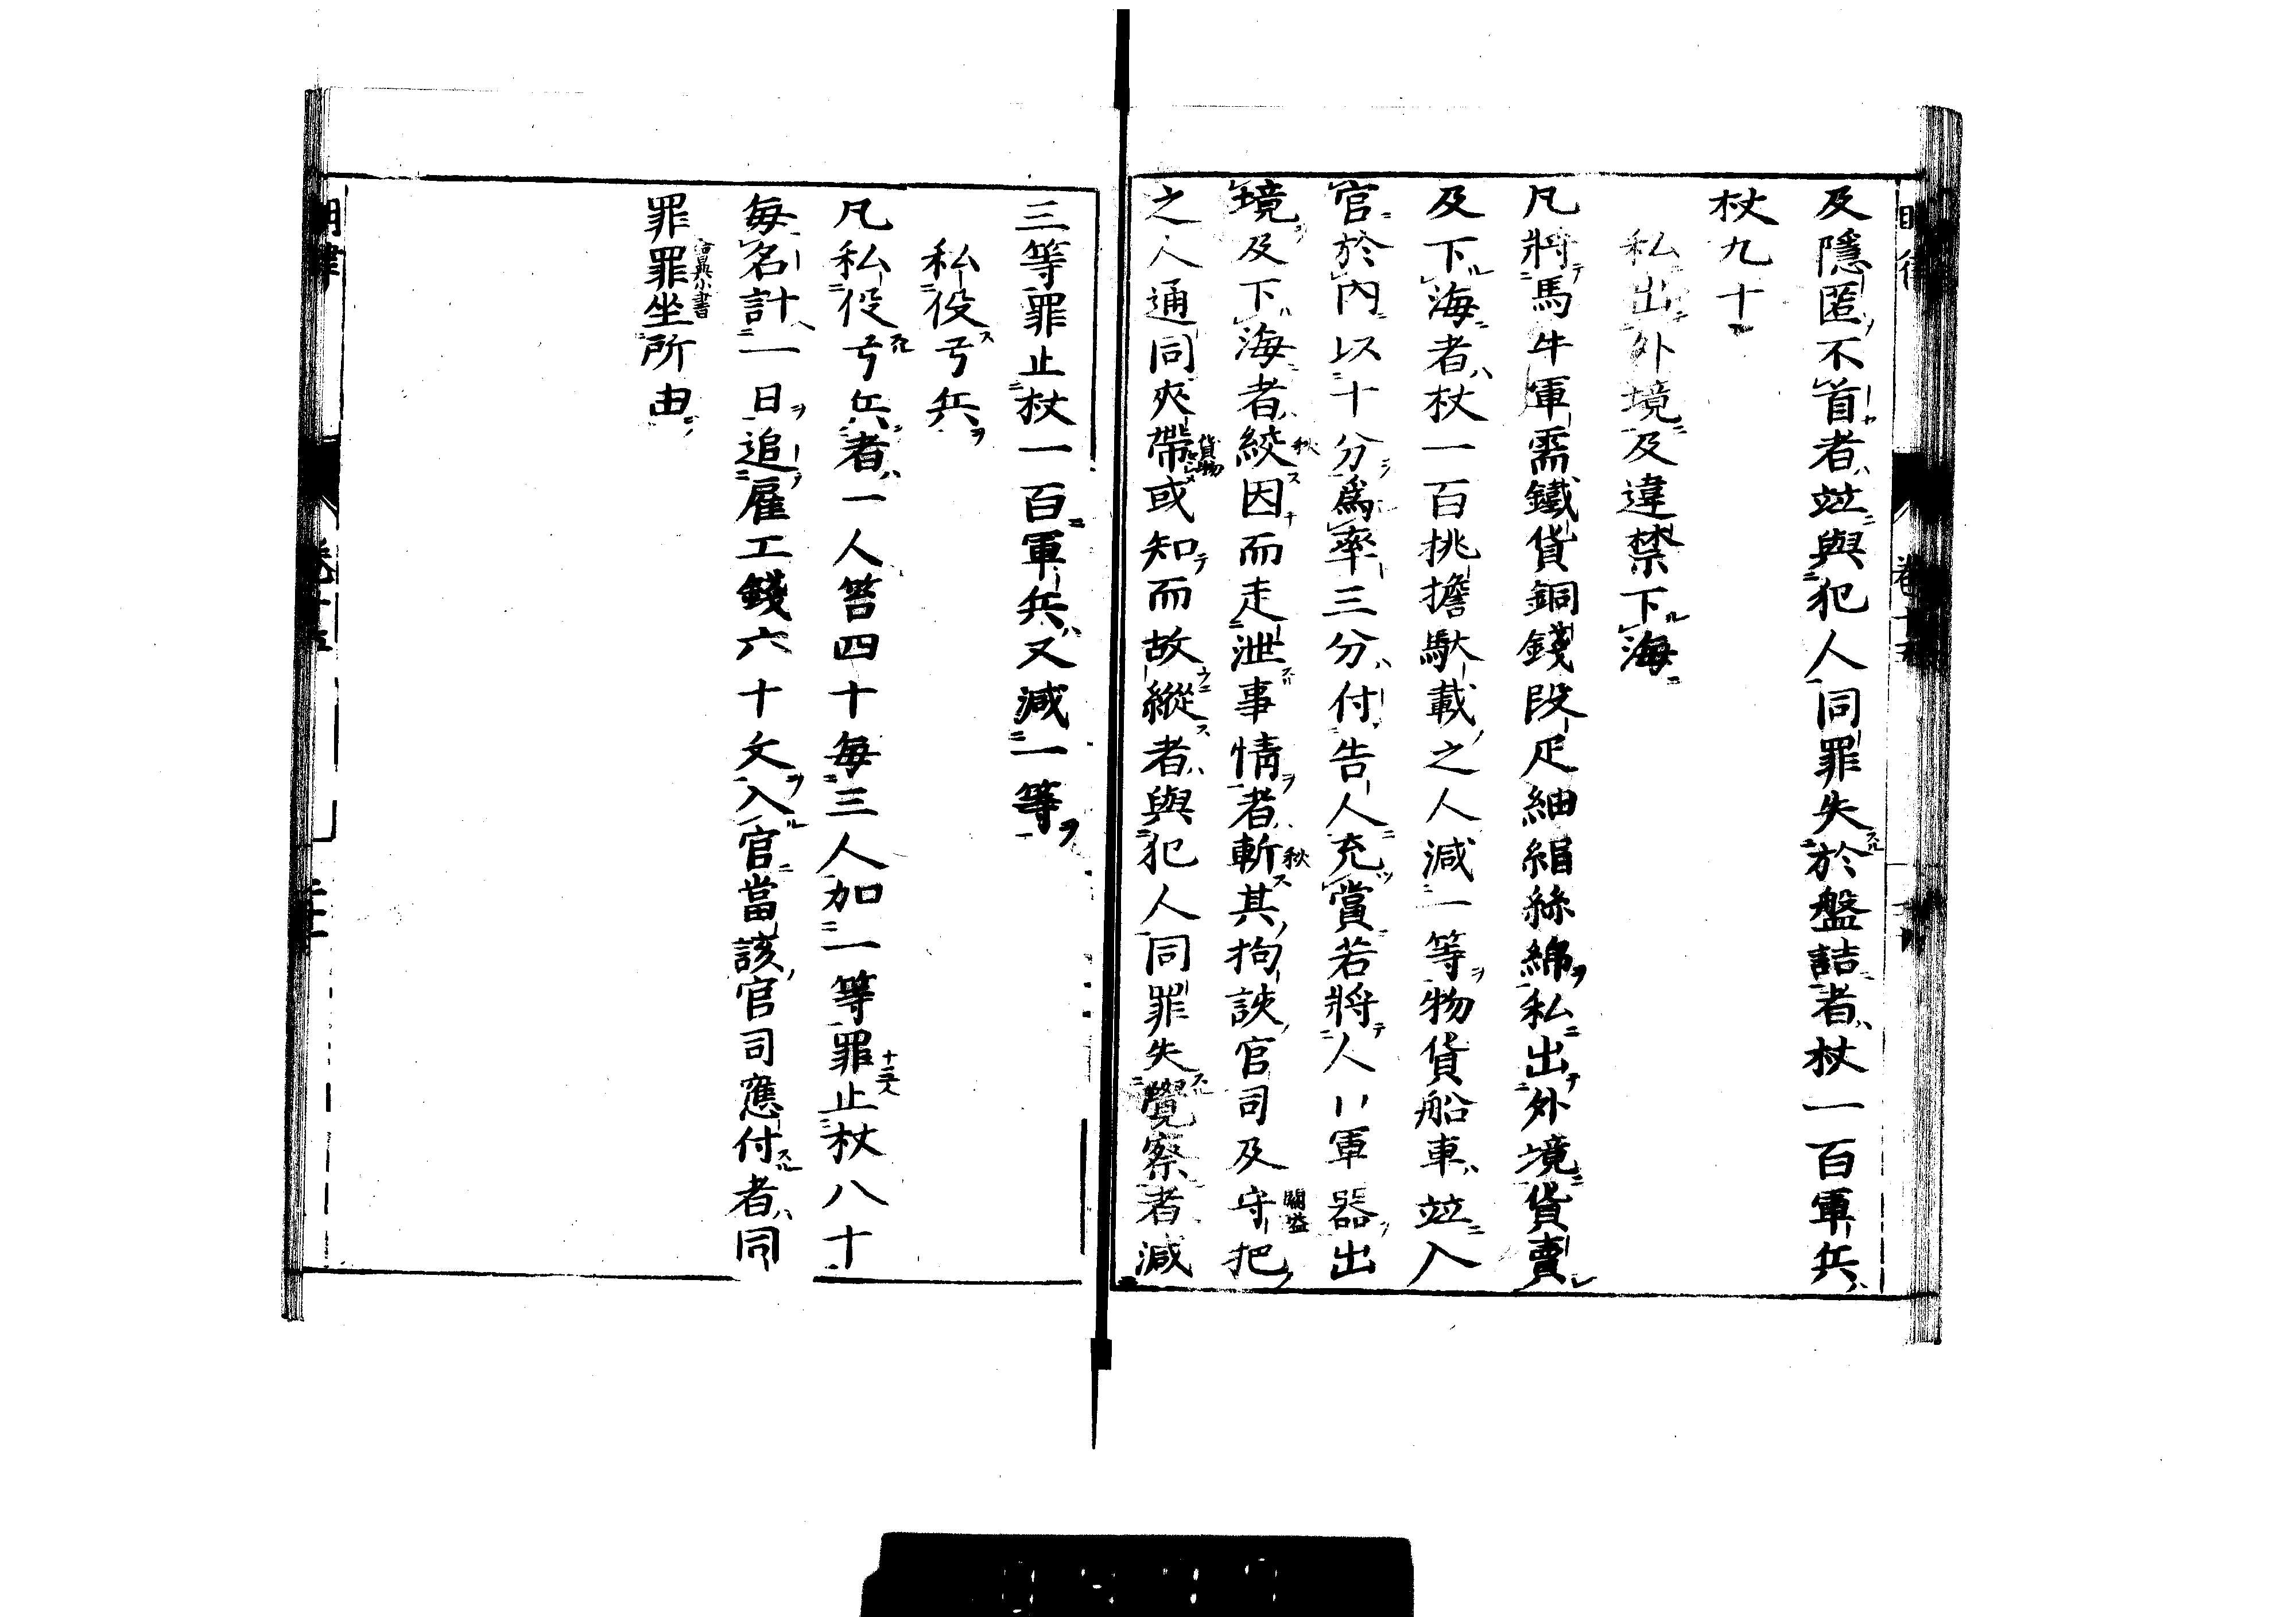 及隱匿不首者並與犯人同罪失於盤詰者杖一百軍兵
杖九十
私出外境及違禁下海
凡將馬牛軍需鐵貨銅錢段疋紬絹絲綿私出外境貨賣
及下海者杖一百挑擔馱載之人減一等物貨船車並入
官於內以十分爲率三分付告人充賞若將人口軍器出
境及下海者絞秋因而走泄事情者斬秋其拘該官司及守把關隘
之人通同夾帶貨物或知而故縱者與犯人同罪失覺察者減
三等罪止杖一百軍兵又減一等
私役弓兵
凡私役弓兵者一人笞四十每三人加一等罪止十三人杖八十
每名計一日追雇工錢六十文入官當該官司應付者同
罪罪坐所由
明律
卷十五